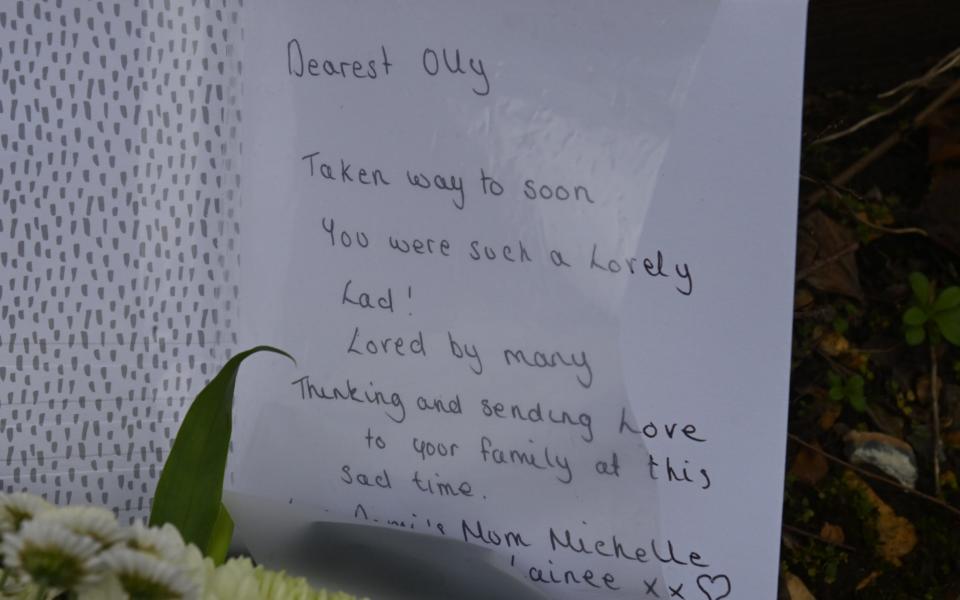 Dearest Olly
Taken way to soon
You were such a Lovely
Lad!
Loved by many
Thinking and sending Love
to your family at this
sad time.
Mom Michelle
x x ♡